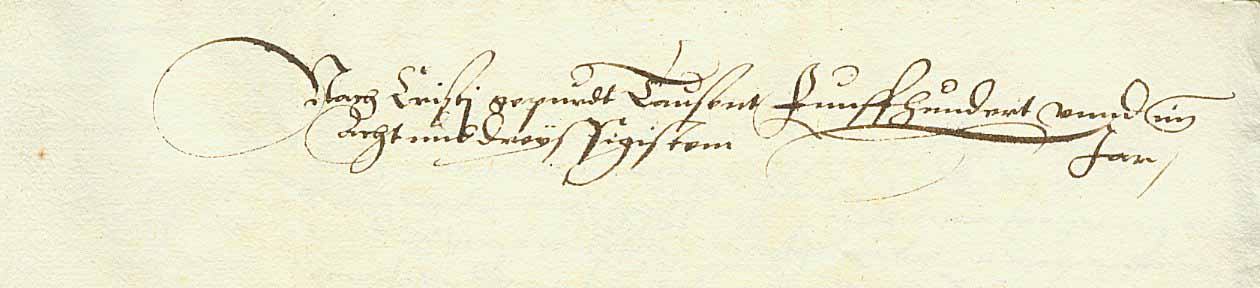 Nach Cristj gepurdt Tausent Funffhundert vnnd im
Achtunddreyssigistem Jar